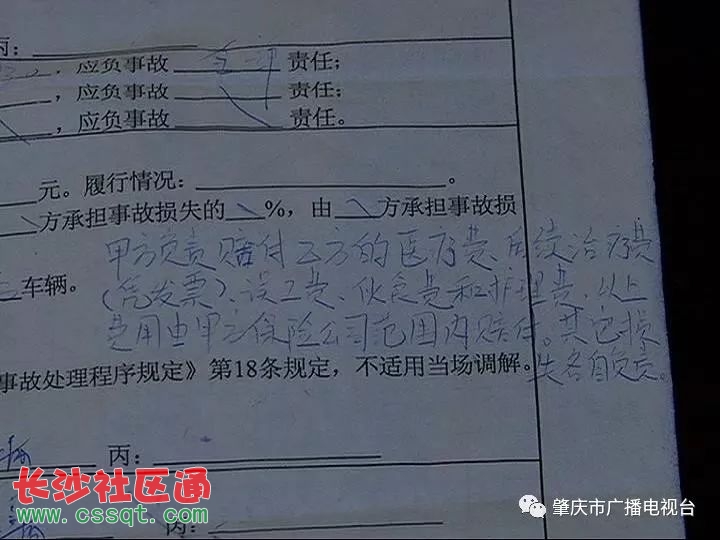 丙：
，应负事故 全部 责任；
，应负事故 责任；
，应负事故 责任。
元。履行情况： 。
方承担事故损失的 %，由 方承担事故损
甲方负责赔付乙方的医疗费、后续治疗费
车辆。
(凭发票)、误工费、伙食费和护理费，以上
费用由甲方保险公司范围内赔付。其它损
事故处理程序规定》第18条规定，不适用当场调解。
失各自负责。
丙：
丙：
长沙社区通
www.cssqt.com
肇庆市广播电视台